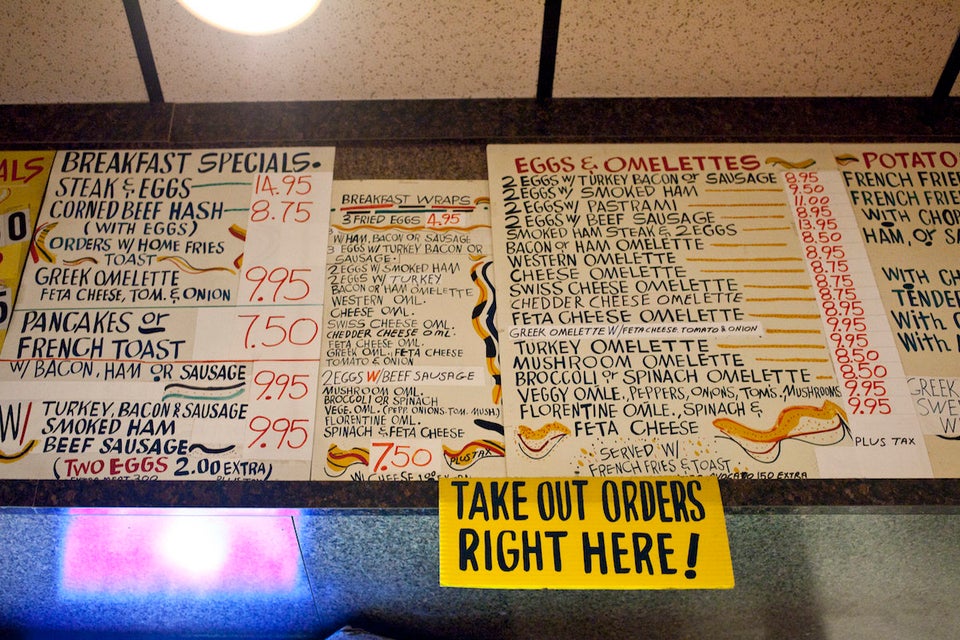 ALS
0
5
BREAKFAST SPECIALS.
STEAK & EGGS 14.95
CORNED BEEF HASH 8.75
(WITH EGGS)
ORDERS W/ HOME FRIES
TOAST
GREEK OMELETTE 9.95
FETA CHEESE, TOM. & ONION
PANCAKES OR 7.50
FRENCH TOAST
W/ BACON, HAM OR SAUSAGE 9.95
W/ TURKEY, BACON & SAUSAGE
SMOKED HAM 9.95
BEEF SAUSAGE
(TWO EGGS 2.00 EXTRA)
BREAKFAST WRAPS
3 FRIED EGGS 4.95
W/HAM, BACON OR SAUSAGE
3 EGGS W/TURKEY BACON OR
SAUSAGE.
2 EGGS W/SMOKED HAM
2 EGGS W/ TURKEY
BACON OR HAM OMELETTE
WESTERN OML.
CHEESE OML.
SWISS CHEESE OML.
CHEDDER CHEESE OML.
FETA CHEESE OML.
GREEK OML. FETA CHEESE
TOMATO & ONION
2 EGGS W/BEEF SAUSAGE
MUSHROOM OML.
BROCCOLI OR SPINACH
VEGE. OML. (PEPP. ONIONS. TOM. MUSH)
FLORENTINE OML.
SPINACH & FETA CHEESE
7.50 PLUS TAX
W/ CHEESE
EGGS & OMELETTES
2 EGGS W/ TURKEY BACON OR SAUSAGE 8.95
2 EGGS W/ SMOKED HAM 9.50
2 EGGS W/ PASTRAMI 11.00
2 EGGS W/ BEEF SAUSAGE 8.95
SMOKED HAM STEAK & 2 EGGS 13.95
BACON OR HAM OMELETTE 8.50
WESTERN OMELETTE 8.95
CHEESE OMELETTE 8.75
SWISS CHEESE OMELETTE 8.75
CHEDDER CHEESE OMELETTE 8.75
FETA CHEESE OMELETTE 8.95
GREEK OMELETTE W/ FETA CHEESE, TOMATO & ONION 9.95
TURKEY OMELETTE 9.95
MUSHROOM OMELETTE 8.50
BROCCOLI OR SPINACH OMELETTE 8.50
VEGGY OMLE., PEPPERS, ONIONS, TOM'S. MUSHROOMS 9.95
FLORENTINE OMLE., SPINACH & 9.95
FETA CHEESE
PLUS TAX
SERVED W/
FRENCH FRIES & TOAST
AVOCATO 1.50 EXTRA
POTATO
FRENCH FRIE
FRENCH FRIE
WITH CHOP
HAM, OR SA
WITH CH
TENDER
WITH C
WITH
GREEK
SWE
W
TAKE OUT ORDERS
RIGHT HERE!